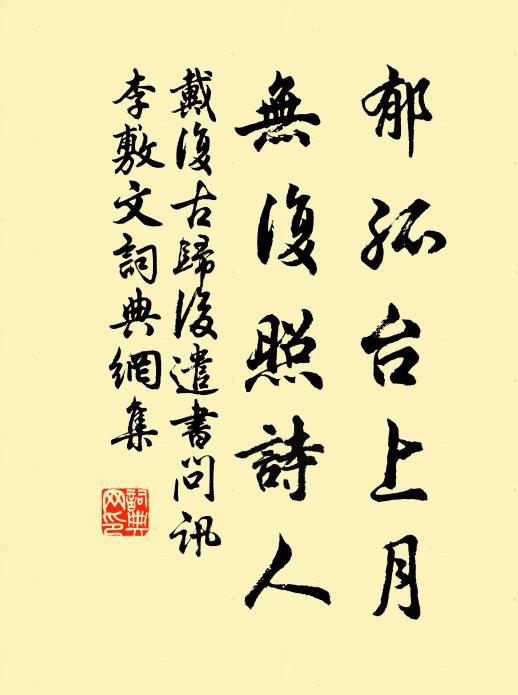 郁孤台上月
無復照詩人
戴復古歸後遣書問訊
李敷文詞典網集
詞典網印